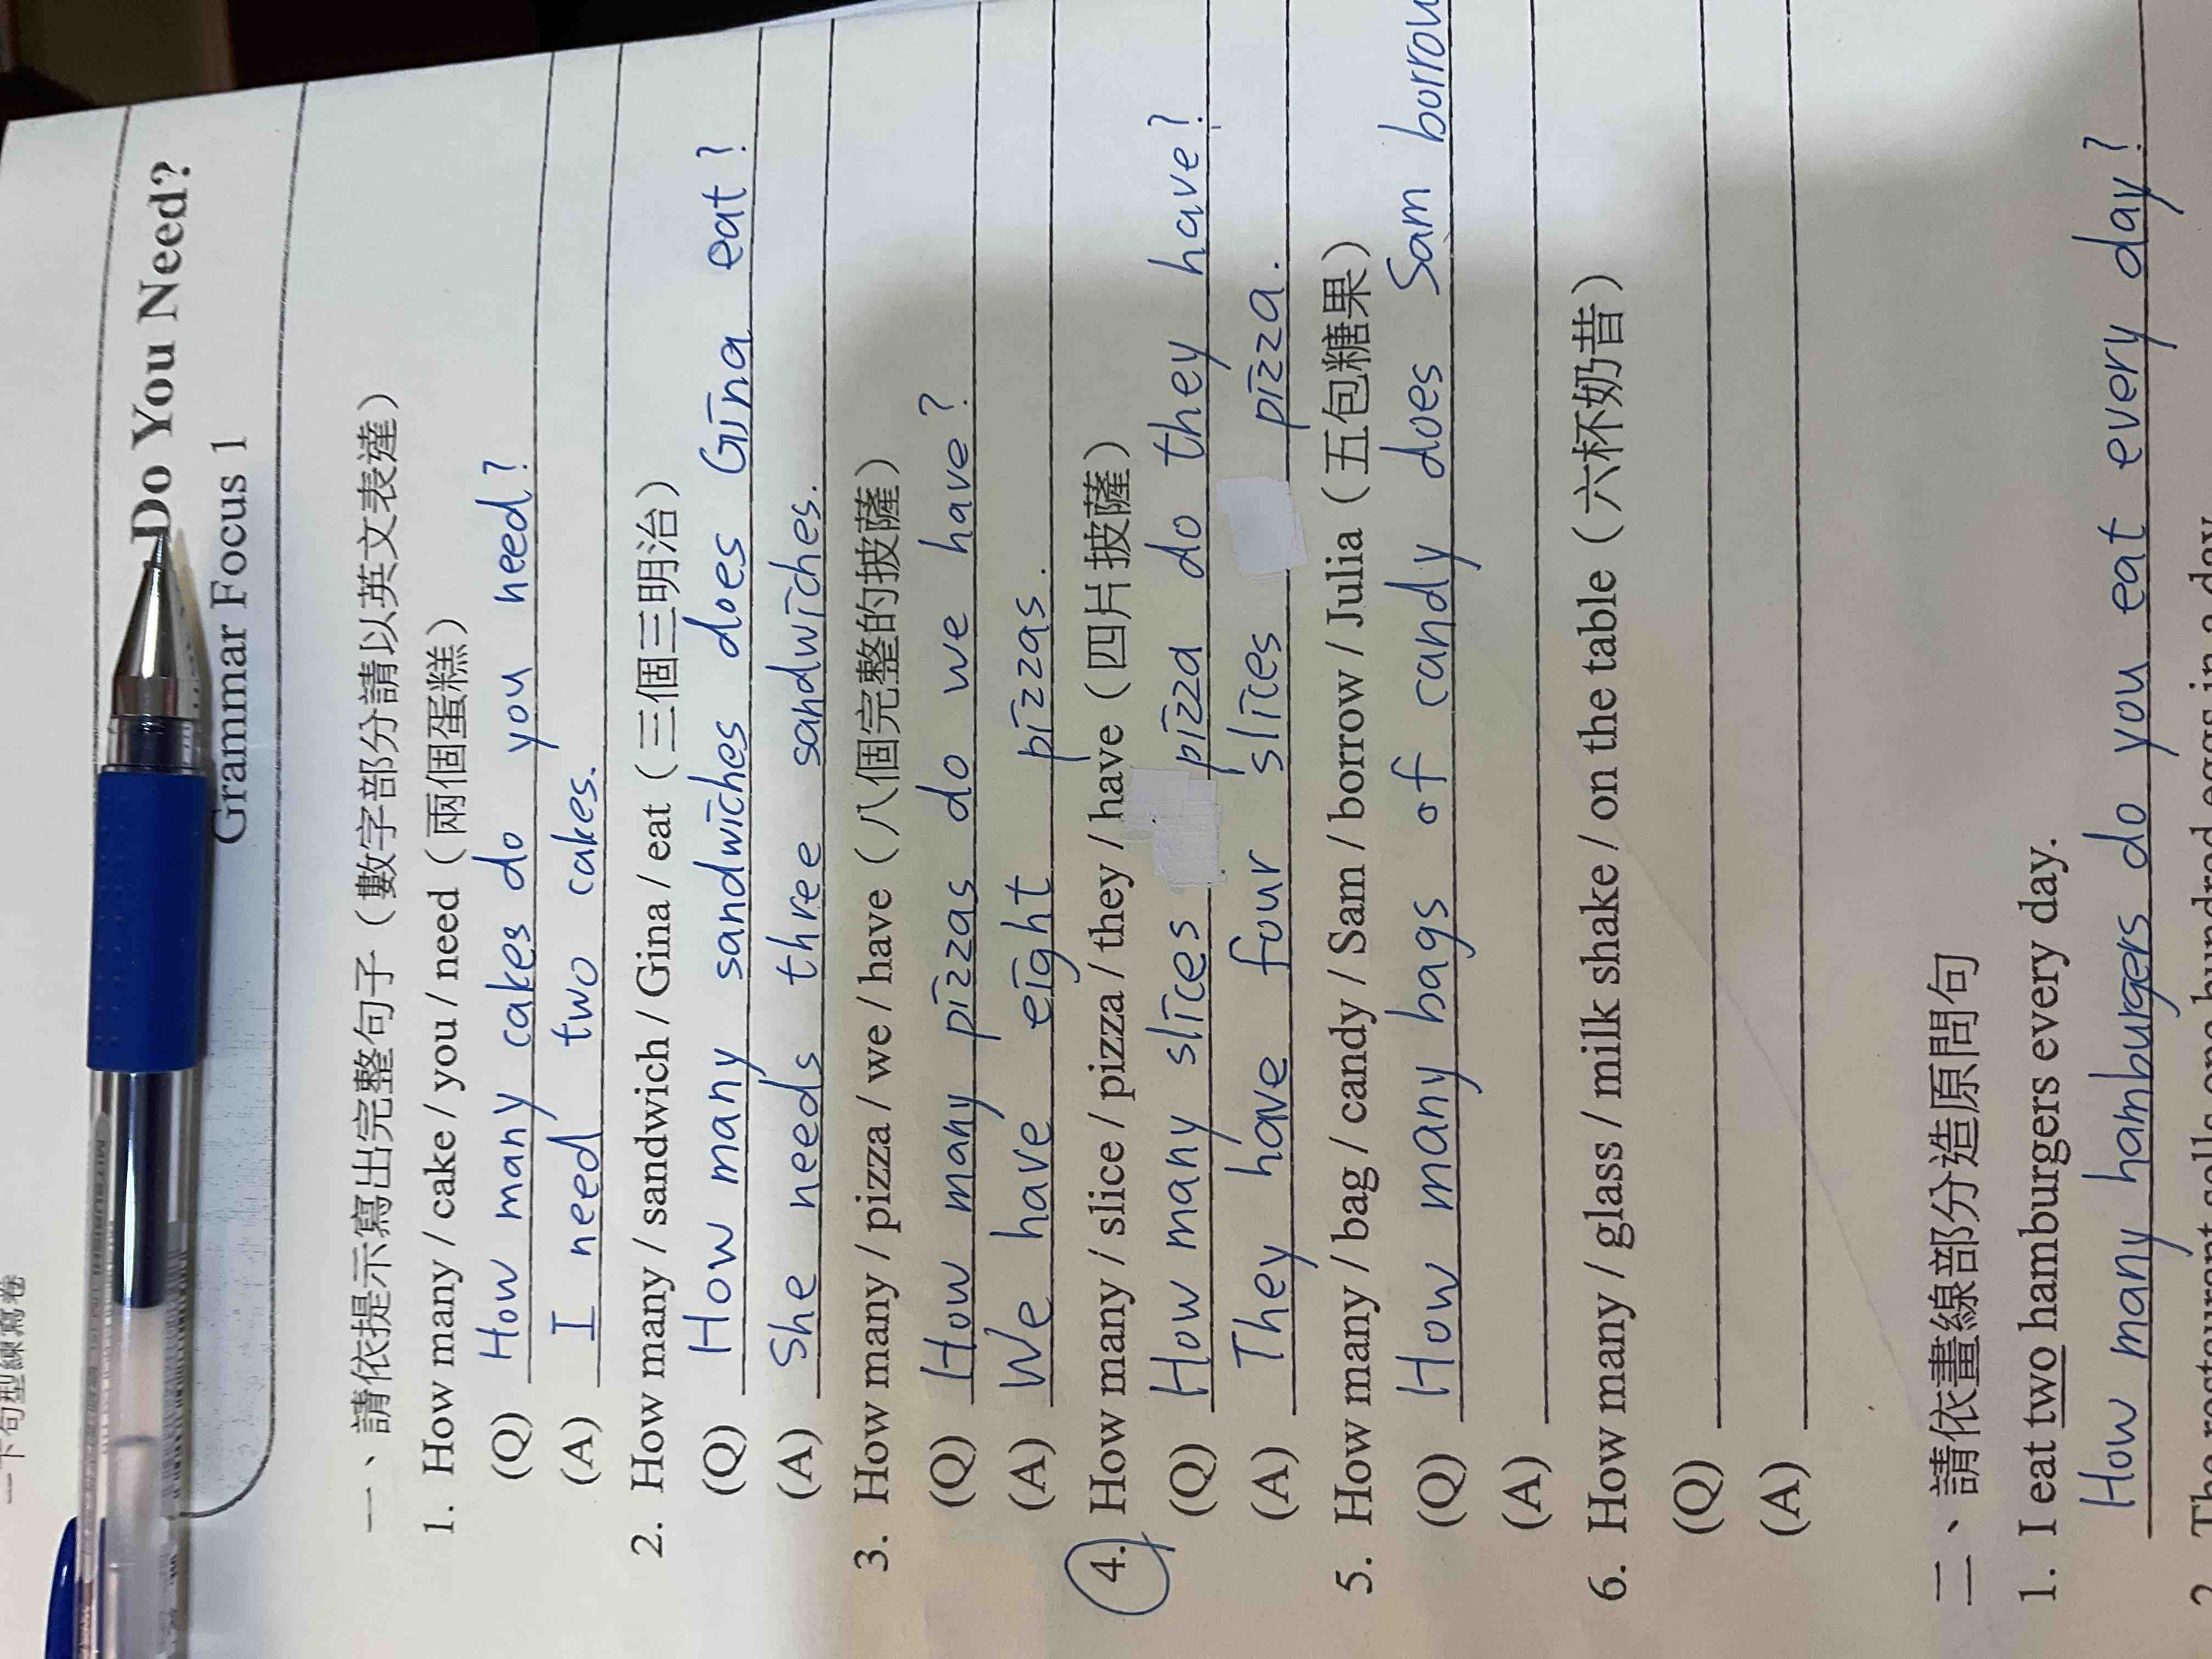 Do You Need?
Grammar Focus 1
一、請依提示寫出完整句子（數字部分請以英文表達）
1. How many / cake / you / need（兩個蛋糕）
(Q) How many cakes do you need?
(A) I need two cakes.
2. How many / sandwich / Gina / eat（三個三明治）
(Q) How many sandwiches does Gina eat?
(A) She needs three sandwiches.
3. How many / pizza / we / have（八個完整的披薩）
(Q) How many pizzas do we have?
(A) We have eight pizzas.
4. How many / slice / pizza / they / have（四片披薩）
(Q) How many slices pizza do they have?
(A) They have four slices pizza.
5. How many / bag / candy / Sam / borrow / Julia（五包糖果）
(Q) How many bags of candy does Sam borrow
(A)
6. How many / glass / milk shake / on the table（六杯奶昔）
(Q)
(A)
二、請依畫線部分造原問句
1. I eat two hamburgers every day.
How many hamburgers do you eat every day?